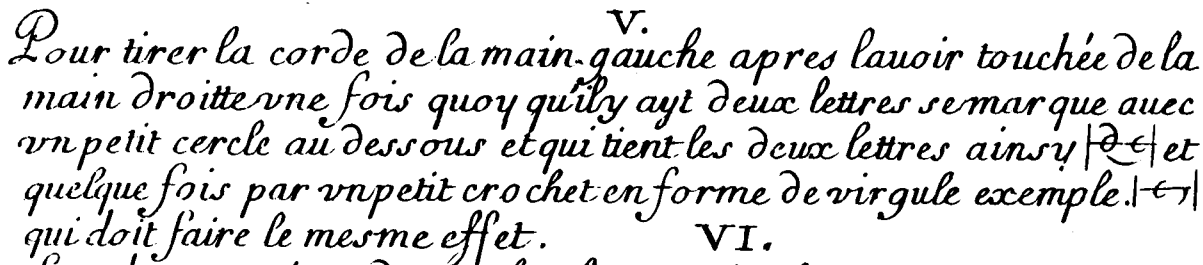 V.
Pour tirer la corde de la main gauche apres lauoir touchée de la
main droitte vne fois quoy qu'il y ayt deux lettres se marque auec
vn petit cercle au dessous et qui tient les deux lettres ainsy |d e| et
quelque fois par vn petit crochet en forme de virgule exemple. |e ,|
qui doit faire le mesme effet. VI.